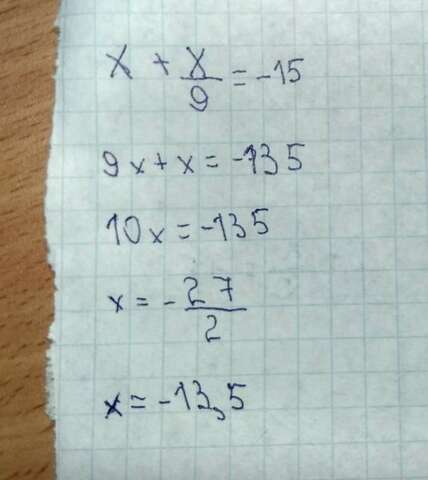 x + x/9 = -15
9x + x = -135
10x = -135
x = - 27/2
x = -13,5